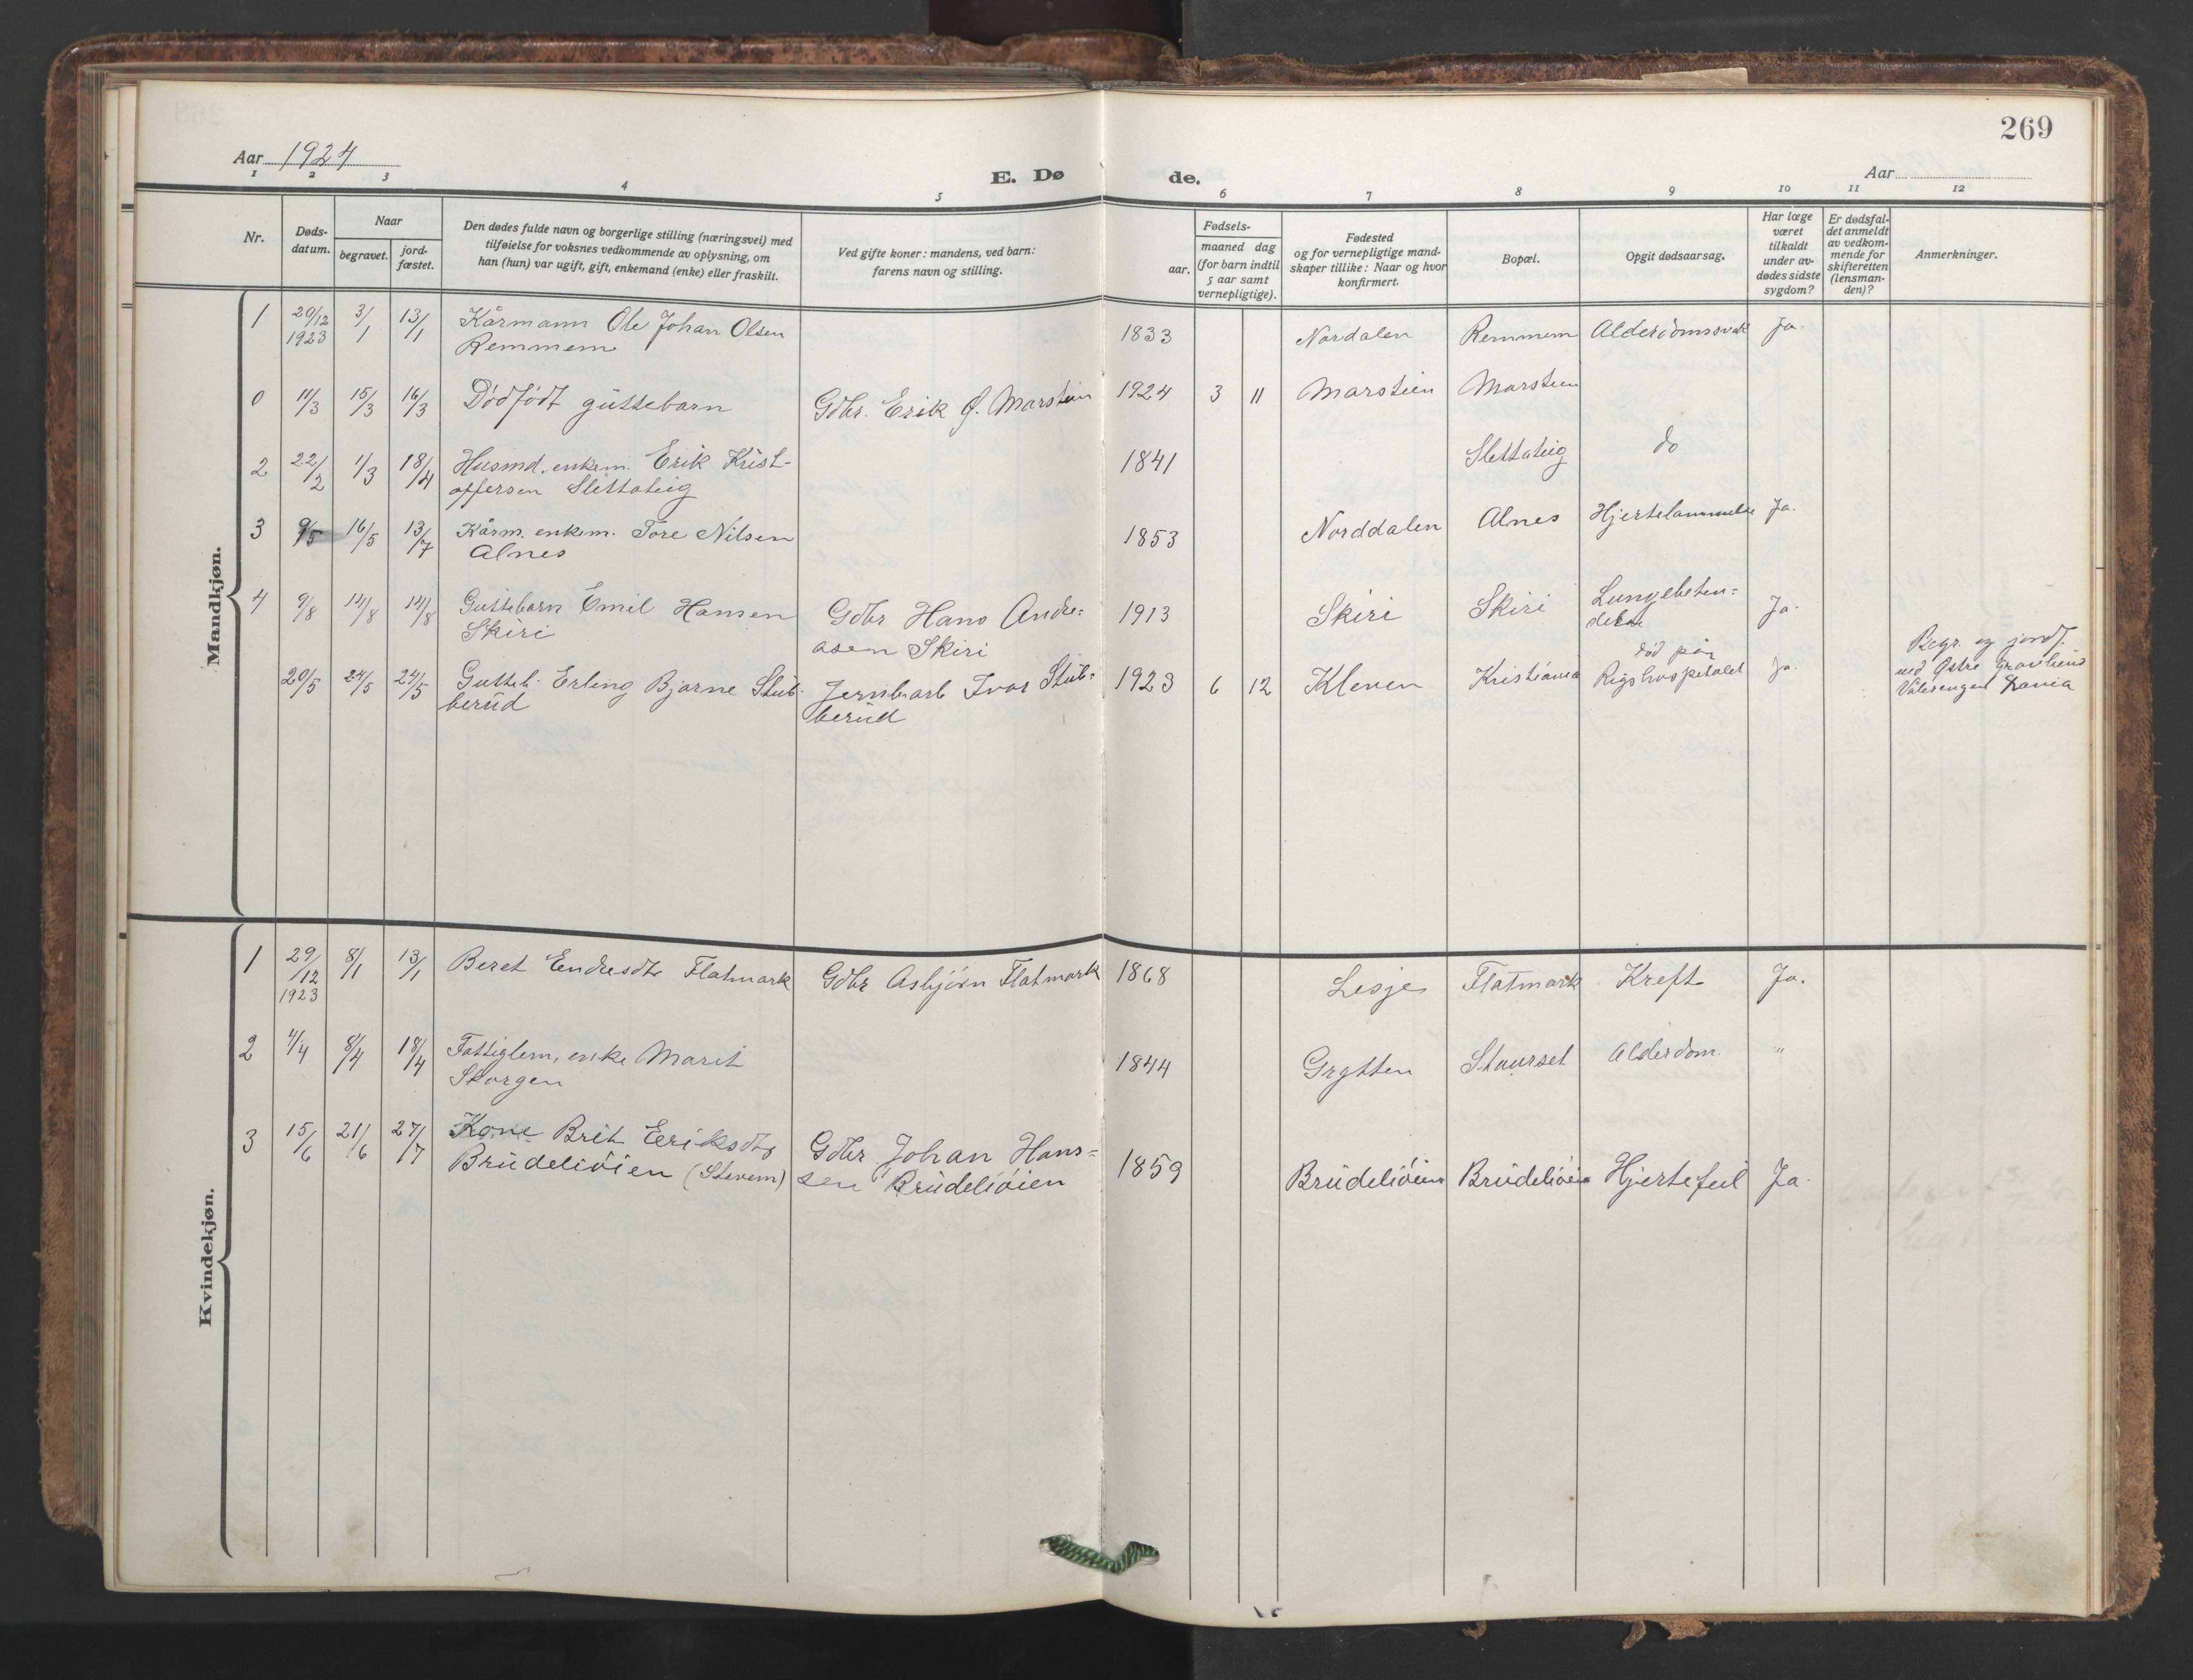 269
Aar 1924
E. Dø de.
Aar
1 2 3 4 5 6 7 8 9 10 11 12
Nr.
Døds-
datum.
Naar
begravet.
jord-
fæstet.
Den dødes fulde navn og borgerlige stilling (næringsvei) med
tilføielse for voksnes vedkommende av oplysning, om
han (hun) var ugift, gift, enkemand (enke) eller fraskilt.
Ved gifte koner: mandens, ved barn:
farens navn og stilling.
Fødsels-
aar.
maaned dag
(for barn indtil
5 aar samt
vernepligtige).
Fødested
og for vernepligtige mand-
skaper tillike: Naar og hvor
konfirmert.
Bopæl.
Opgit dødsaarsag.
Har læge
været
tilkaldt
under av-
dødes sidste
sygdom?
Er dødsfal-
det anmeldt
av vedkom-
mende for
skifteretten
(lensman-
den)?
Anmerkninger.
Mandkjøn.
1 20/12 3/1 13/1 Kårmann Ole Johan Olsen 1833 Nordalen Remmem Ja.
1923 Remmem
0 11/3 15/3 16/3 Dødfødt guttebarn Gdbr. Erik O. Marstein 1924 3 11 Marstein Marstein
2 22/2 1/3 18/4 Husmd. enkem. Erik Krist- 1841 Slettateig do
offersen Slettateig
3 9/5 16/5 13/7 Kårm. enkem. Tore Nilsen 1853 Norddalen Alnes Hjertelammelse Ja.
Alnes
4 9/8 14/8 14/8 Guttebarn Emil Hansen Gdbr Hans Andre- 1913 Skiri Skiri Lungebeten- Ja.
Skiri asen Skiri
20/5 24/5 24/5 Gutteb. Erling Bjarne Stub- Jernb.arb Ivar Stub- 1923 6 12 Kleven Kristiania død på Ja. Begr. og jordf.
berud berud Rigshospitalet ved Østre Gravlund
Vålerengen
Kvindekjøn.
1 29/12 8/1 13/1 Beret Endresdtr Flatmark Gdbr Asbjørn Flatmark 1868 Lesje Flatmark Kreft Ja.
1923
2 4/4 8/4 18/4 Fattiglem, enke Marit 1844 Grytten Staurset Alderdom. "
Skorgen
3 15/6 21/6 27/7 Kone Brit Eeriksdtr Gdbr Johan Hans- 1859 Brudeliøien Brudeliøien Hjertefeil Ja.
Brudeliøien (Stavem) sen Brudeliøien